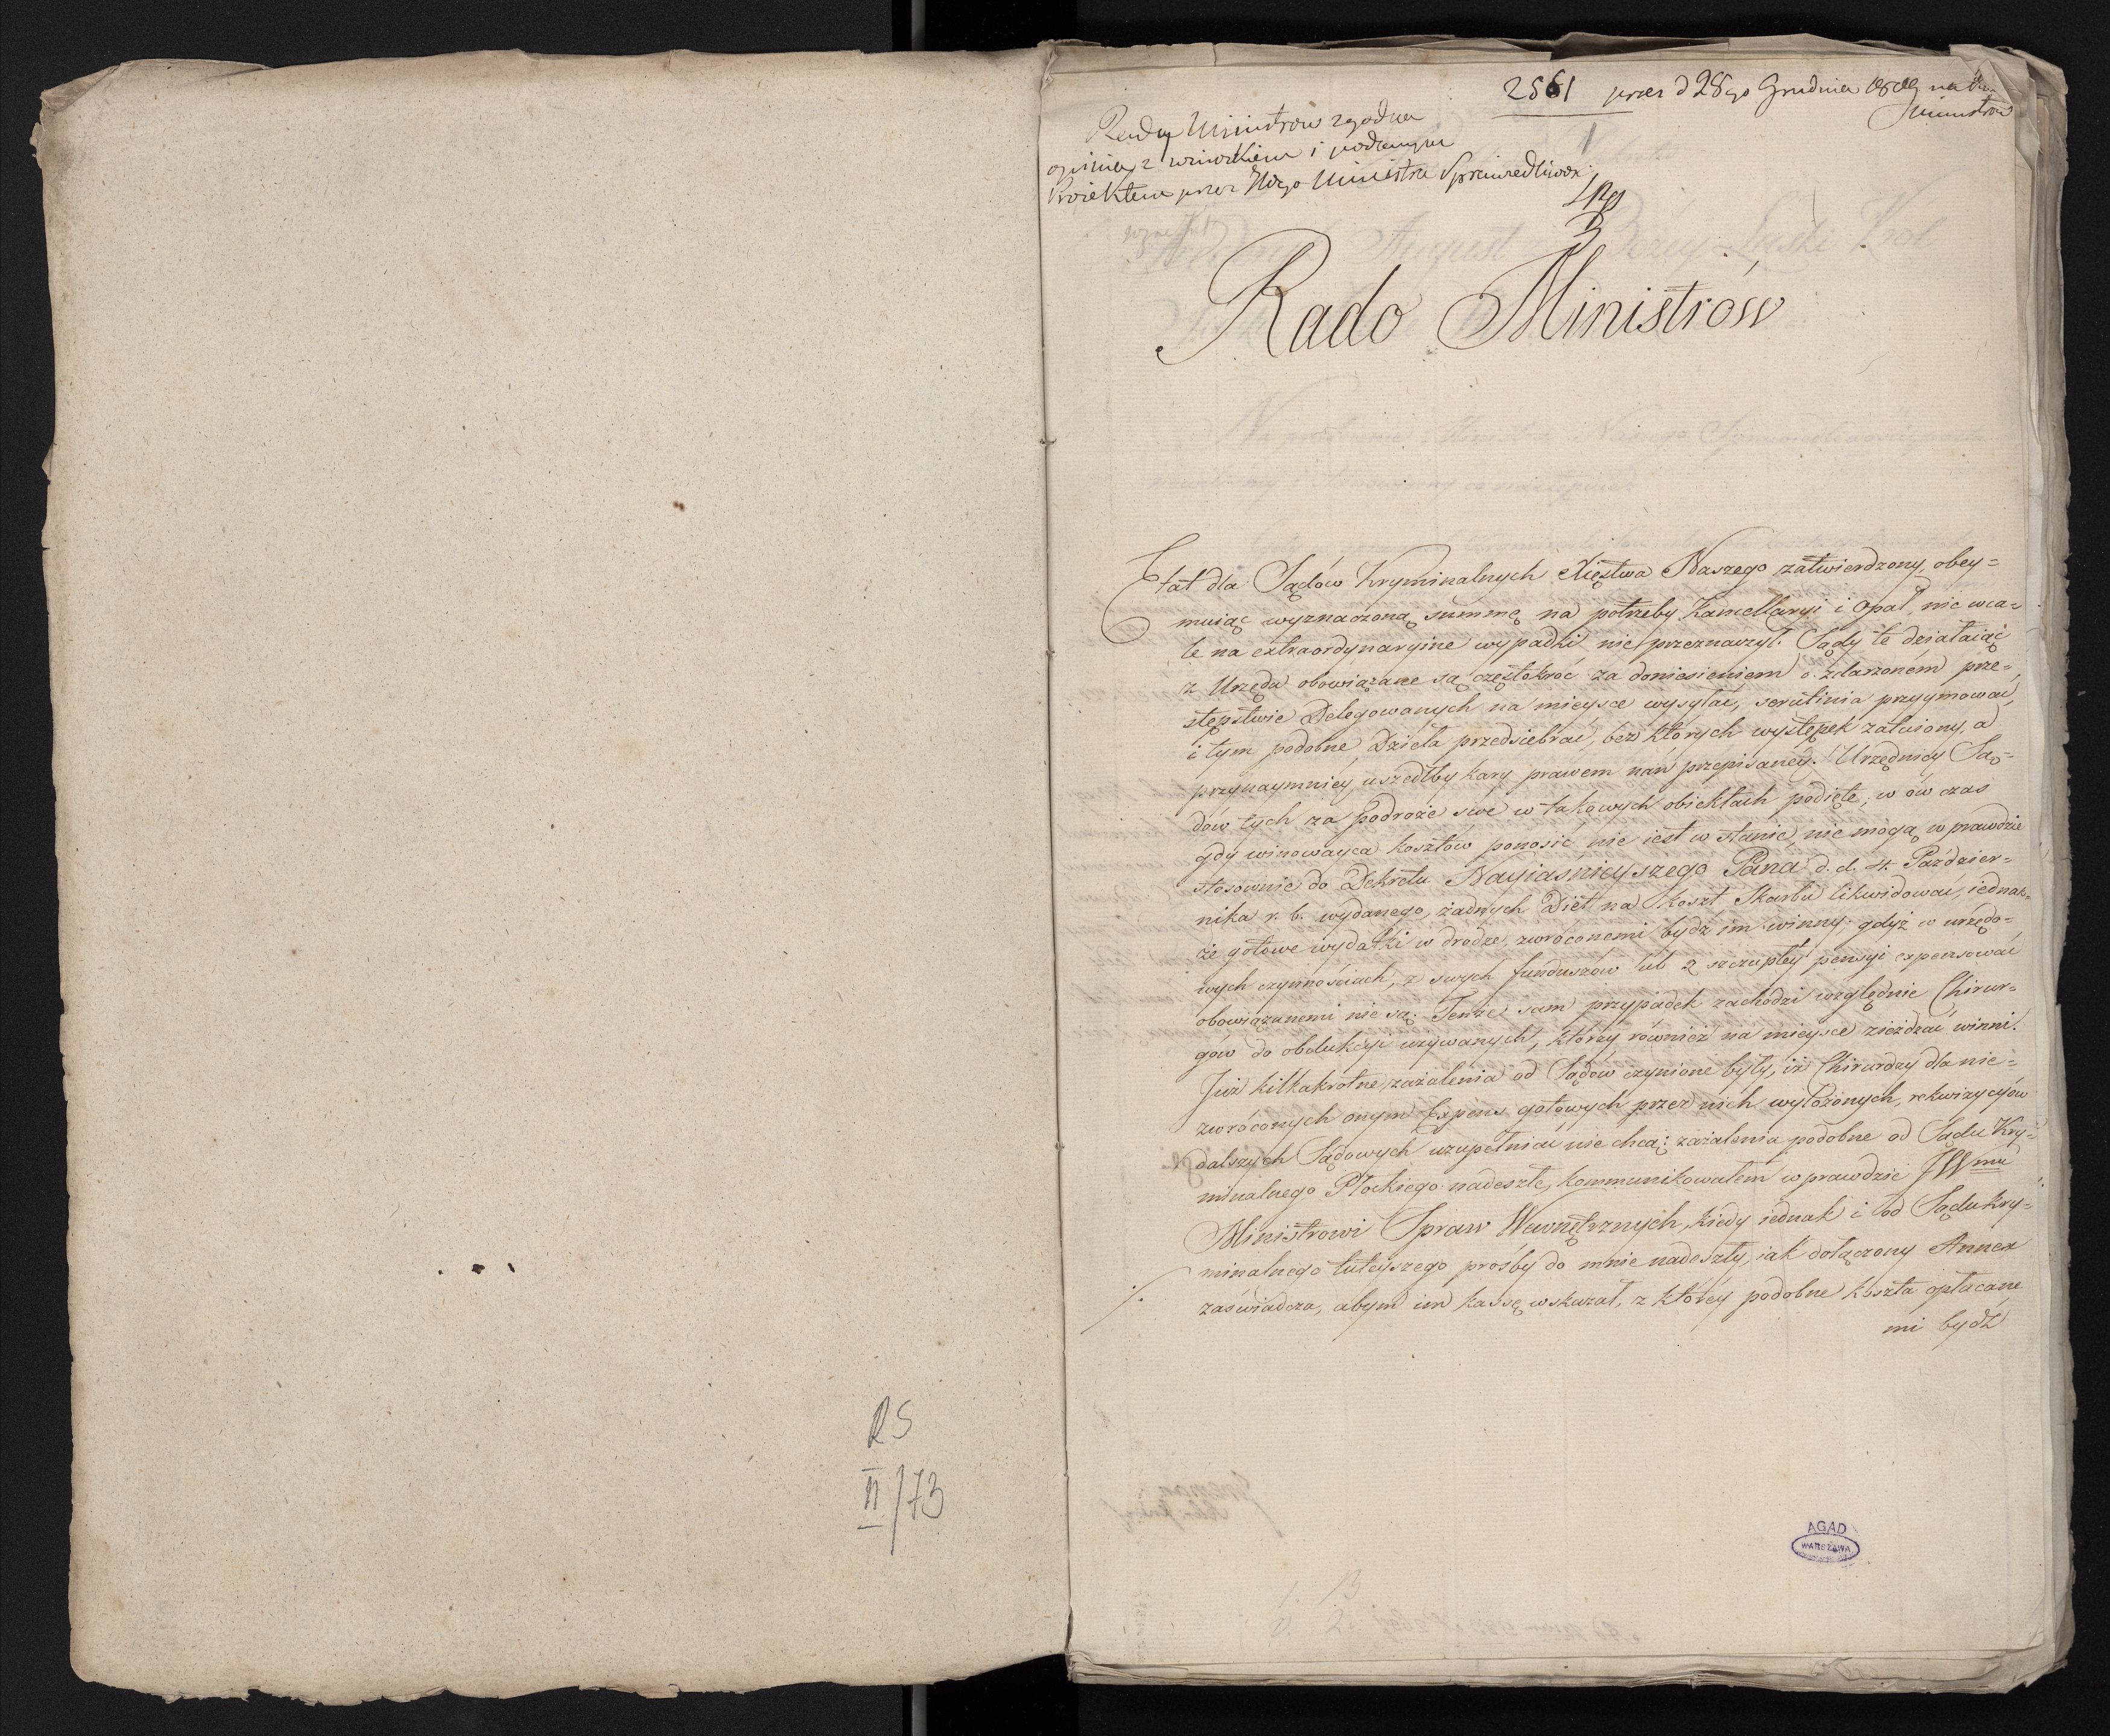 RS
II/73
2561 prez d 28go Grudnia 1809 na
Ministrow
1
Rada Ministrow zgodna
opinia z wnioskiem i podanym
Proiektem przez JWgo Ministra Sprawiedliwoś
Rado Ministrów
Etat dla Sądów Kryminalnych Xięstwa Naszego zatwierdzony, obey=
muiąc wyznaczoną summę na potrzeby Kancellaryi i Opał, nic wca=
le na extraordynaryine wypadki nie przeznaczył. Sądy te działaiąc
z Urzędu obowiązane są częstokroć za doniesieniem o zdarzoném prze=
stępstwie Delegowanych na mieysce wysyłać, scrutinia przyymować,
i tym podobne Dzieła przedsiebrać, bez których występek zatuiony, a
przynaymniey uszedłby kary prawem nań przepisaney. Urzędnicy Są=
dow tych za podroże swe w takowych obiektach podięte, w ów czas
gdy winowayca kosztów ponosić nie iest w stanie, nie mogą w prawdzie
stosownie do Dekretu Nayiaśnieyszego Pana d. d. 4. Paździer=
nika r. b. wydanego, żadnych Diet na koszt Skarbu likwidować, iednak=
że gotowe wydatki w drodze, zwróconemi bydź im winny; gdyż w urzędo=
wych czynnościach, z swych funduszów lub z szczupłey pensyi expensować
obowiązanemi nie są. Tenże sam przypadek zachodzi względnie Chirur=
gów do obdukcyi używanych, którzy również na mieysce zieżdżać winni.
Już kilkakrotne zażalenia od Sądów czynione były, iż Chirurdzy dla nie=
zwróconych onym Expens gotowych przez nich wyłożonych, rekwizycyów
dalszych Sądowych uzupełniać nie chcą; zażalenia podobne od Sądu Kry=
minalnego Płockiego nadeszłe, kommunikowałem w prawdzie JWmu
Ministrowi Spraw Wewnętrznych, kiedy iednak i od Sądu Kry=
minalnego tuteyszego prośby do mnie nadeszły, iak dołączony Annex
zaświadcza, abym im kassę wskazał, z którey podobne koszta opłacane
mi bydź
AGAD
WARSZAWA